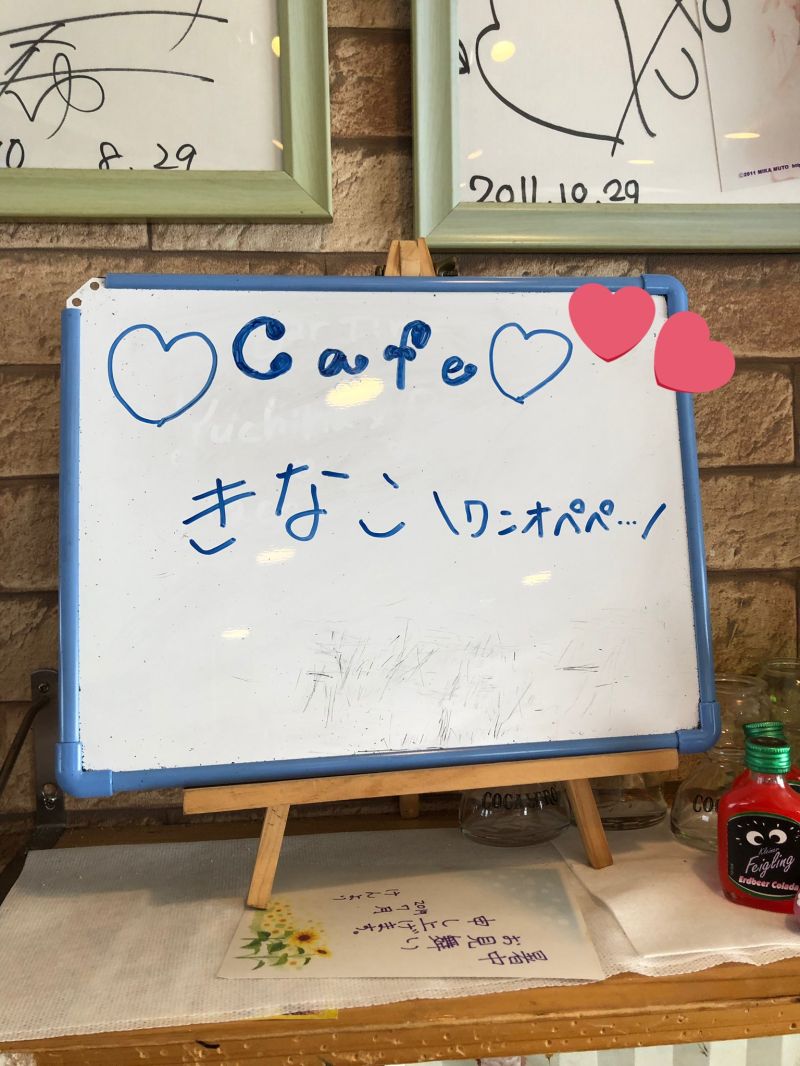 8.29
2011.10.29
©2011 MIKA MUTO
Cafe
きなこ \ワンオペペ…/
COCA
COC
Kleiner
Feigling
Erdbeer Colada
暑中
お見舞い
申し上げます。
2019
7月
けんより